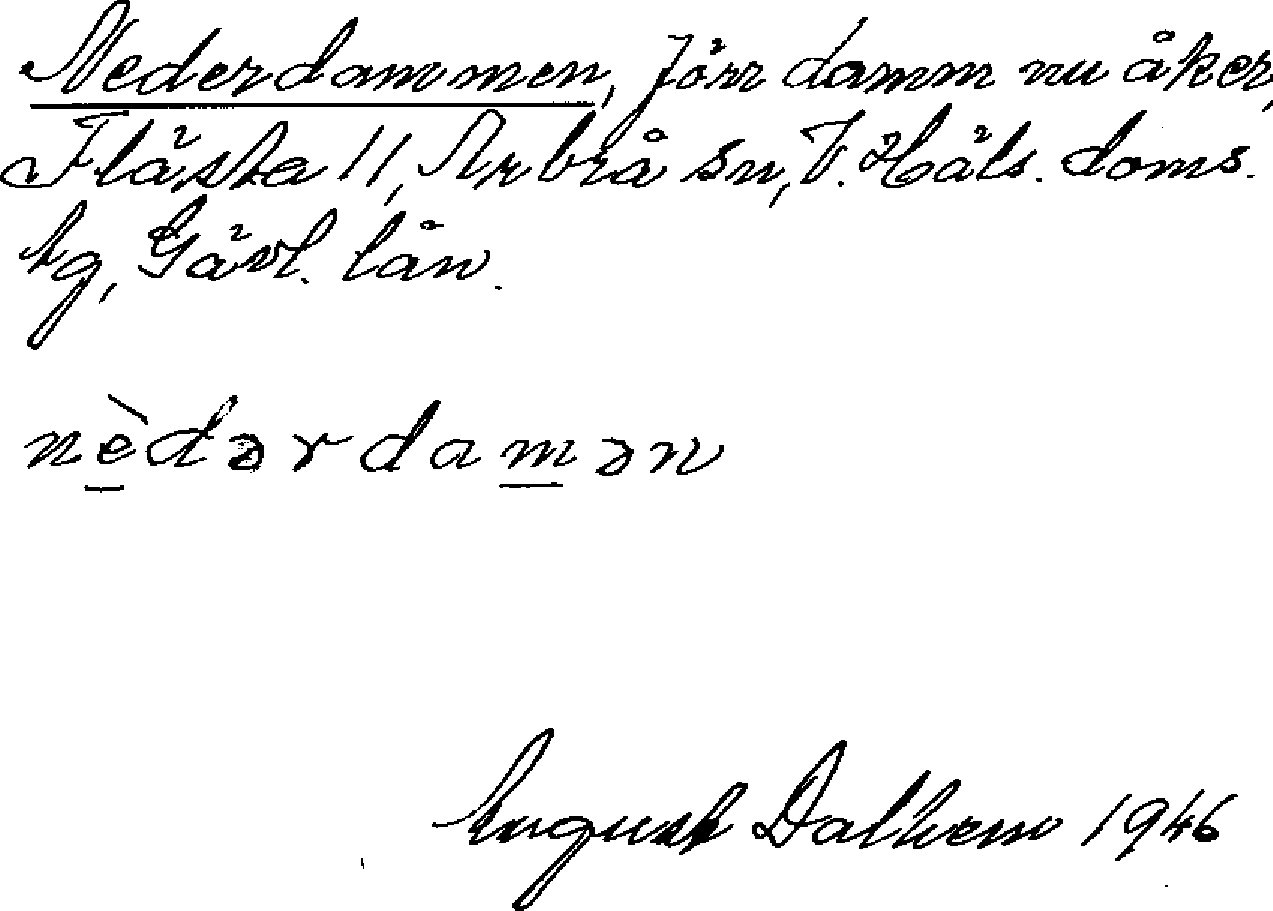 Nederdammen, förr damm nu åker,
Flästa 11, Arbrå sn, V. Häls. doms.
tg, Gävl. län.
nèdərdamən
August Dalhem 1946